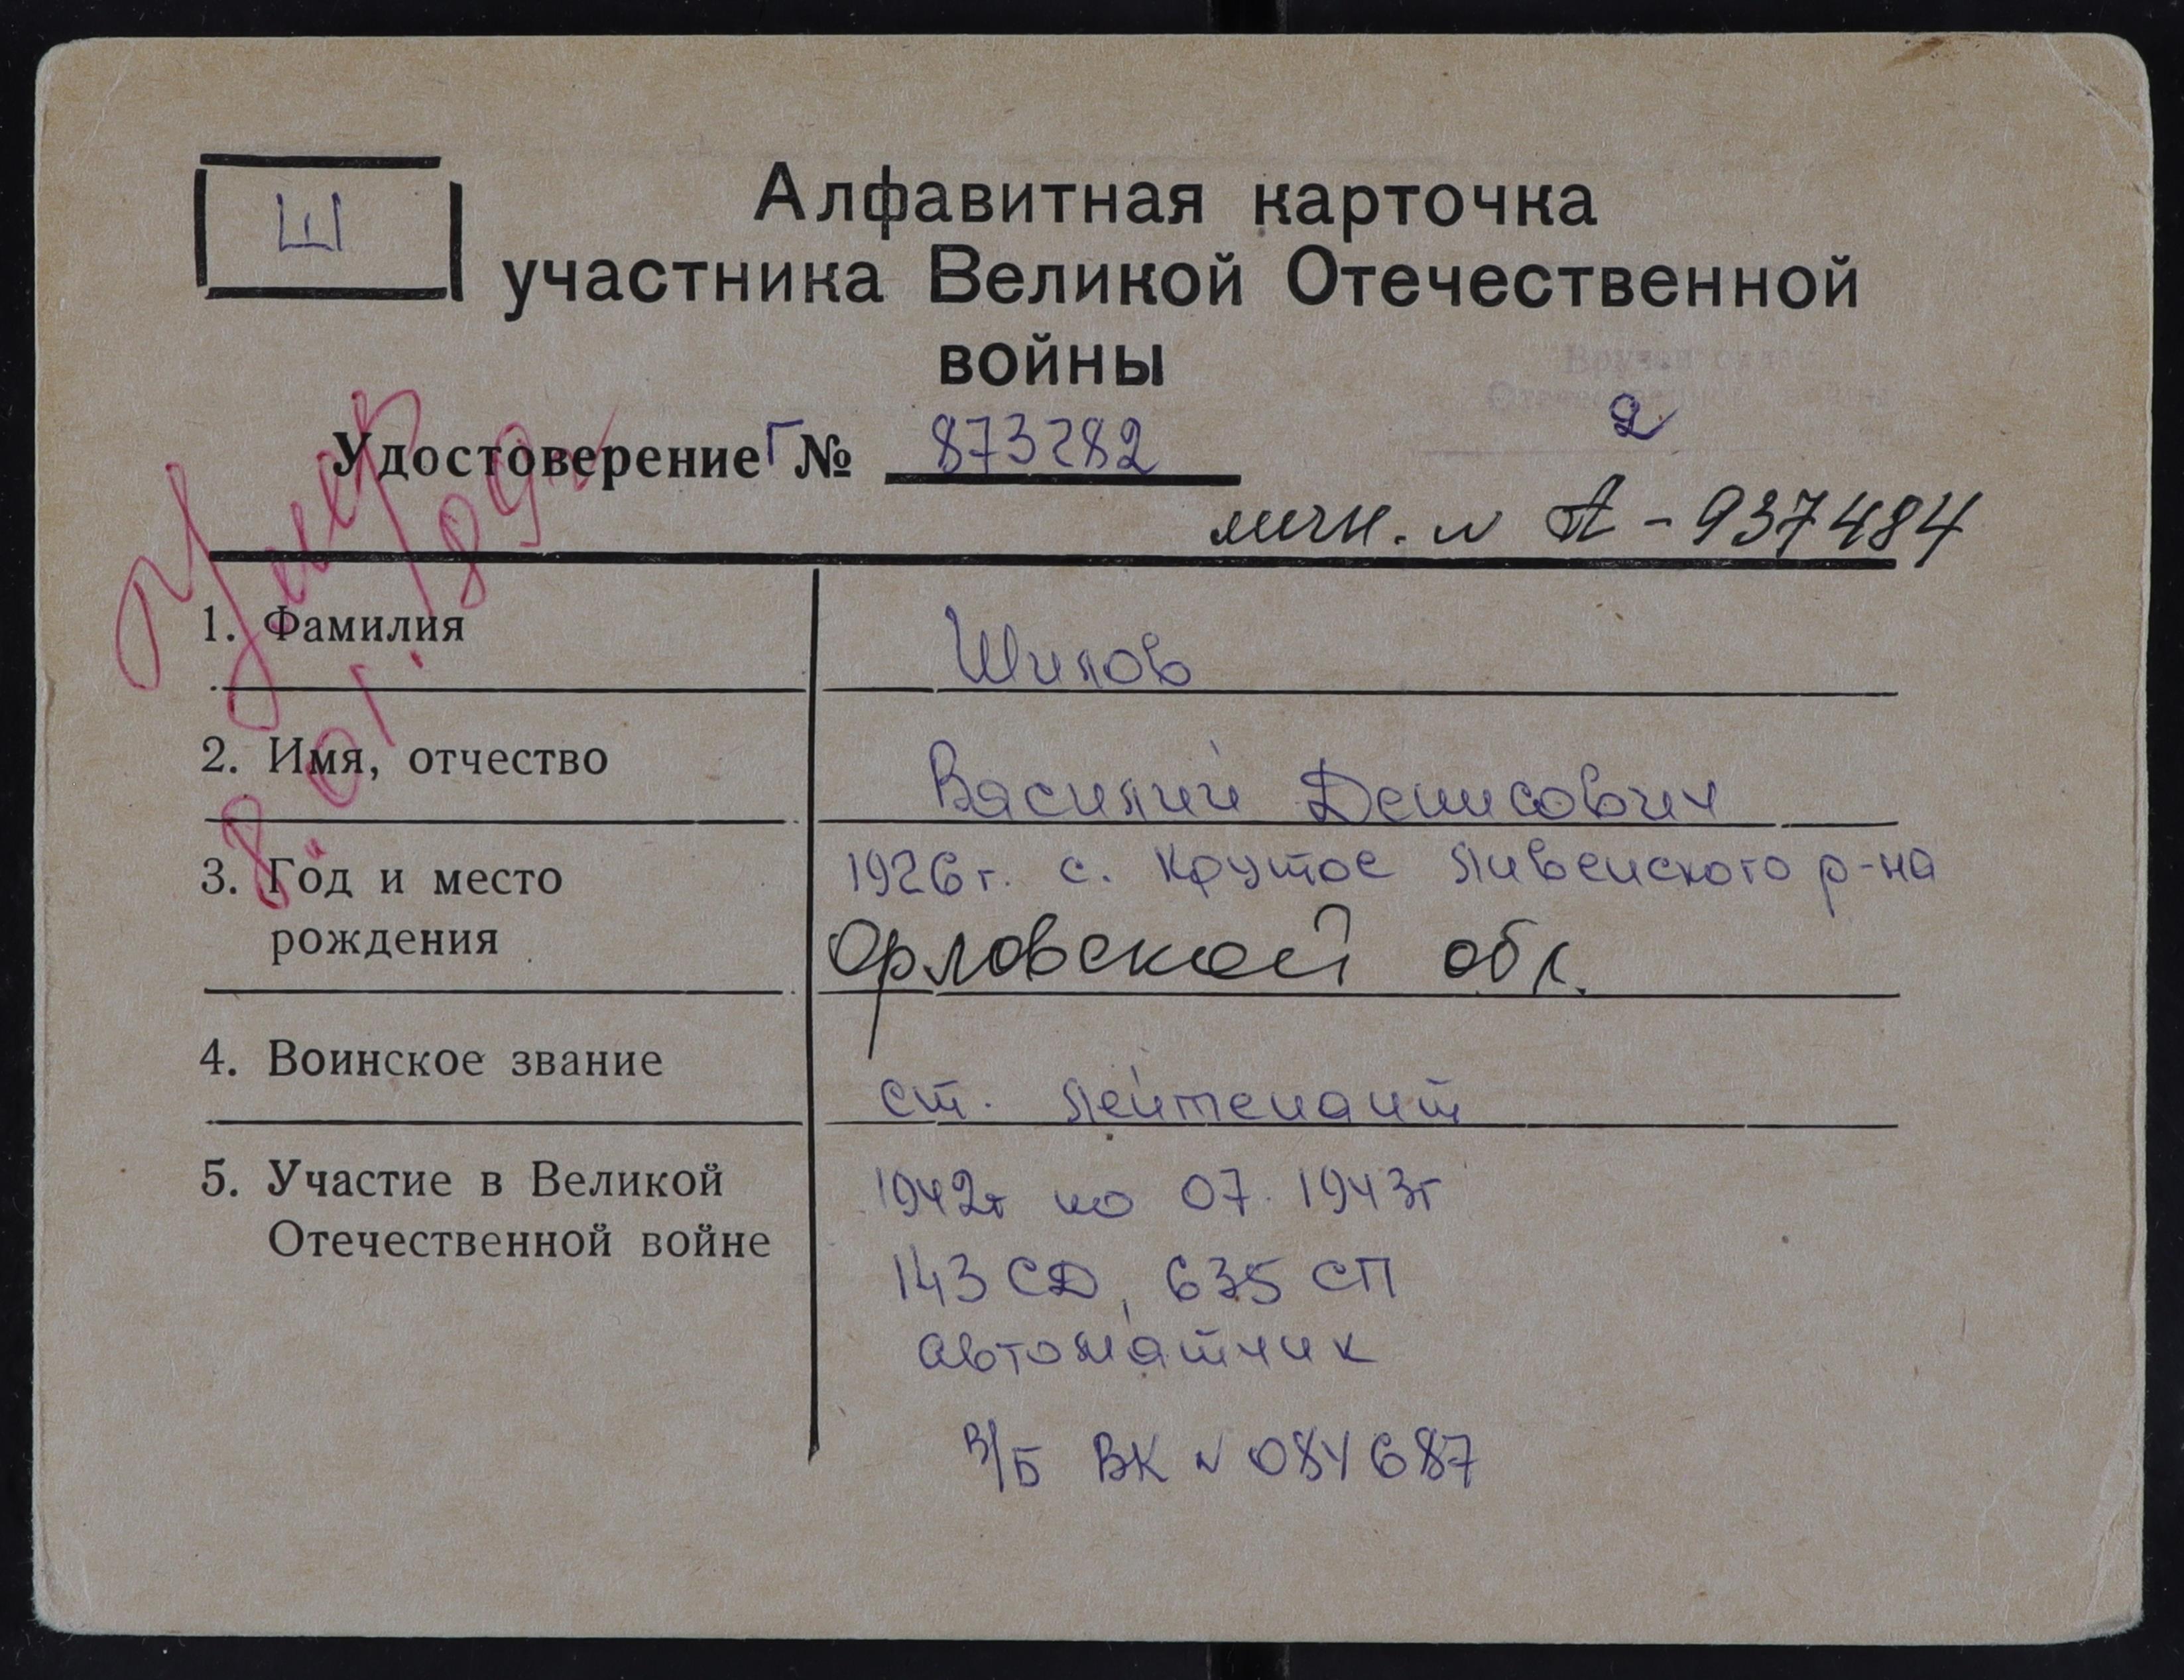 Ш
Алфавитная карточка
участника Великой Отечественной
войны
2
Удостоверение Г № 873282
личн. N А-937484
Умер
8.01.89г
1. Фамилия Шилов
2. Имя, отчество Василий Денисович
3. Год и место 1926г. с. Крутое Ливенского р-на
рождения Орловской обл.
4. Воинское звание ст. лейтенант
5. Участие в Великой 1942г по 07. 1943г
Отечественной войне 143 СД, 635 СП
автоматчик
В/Б ВК N 084687